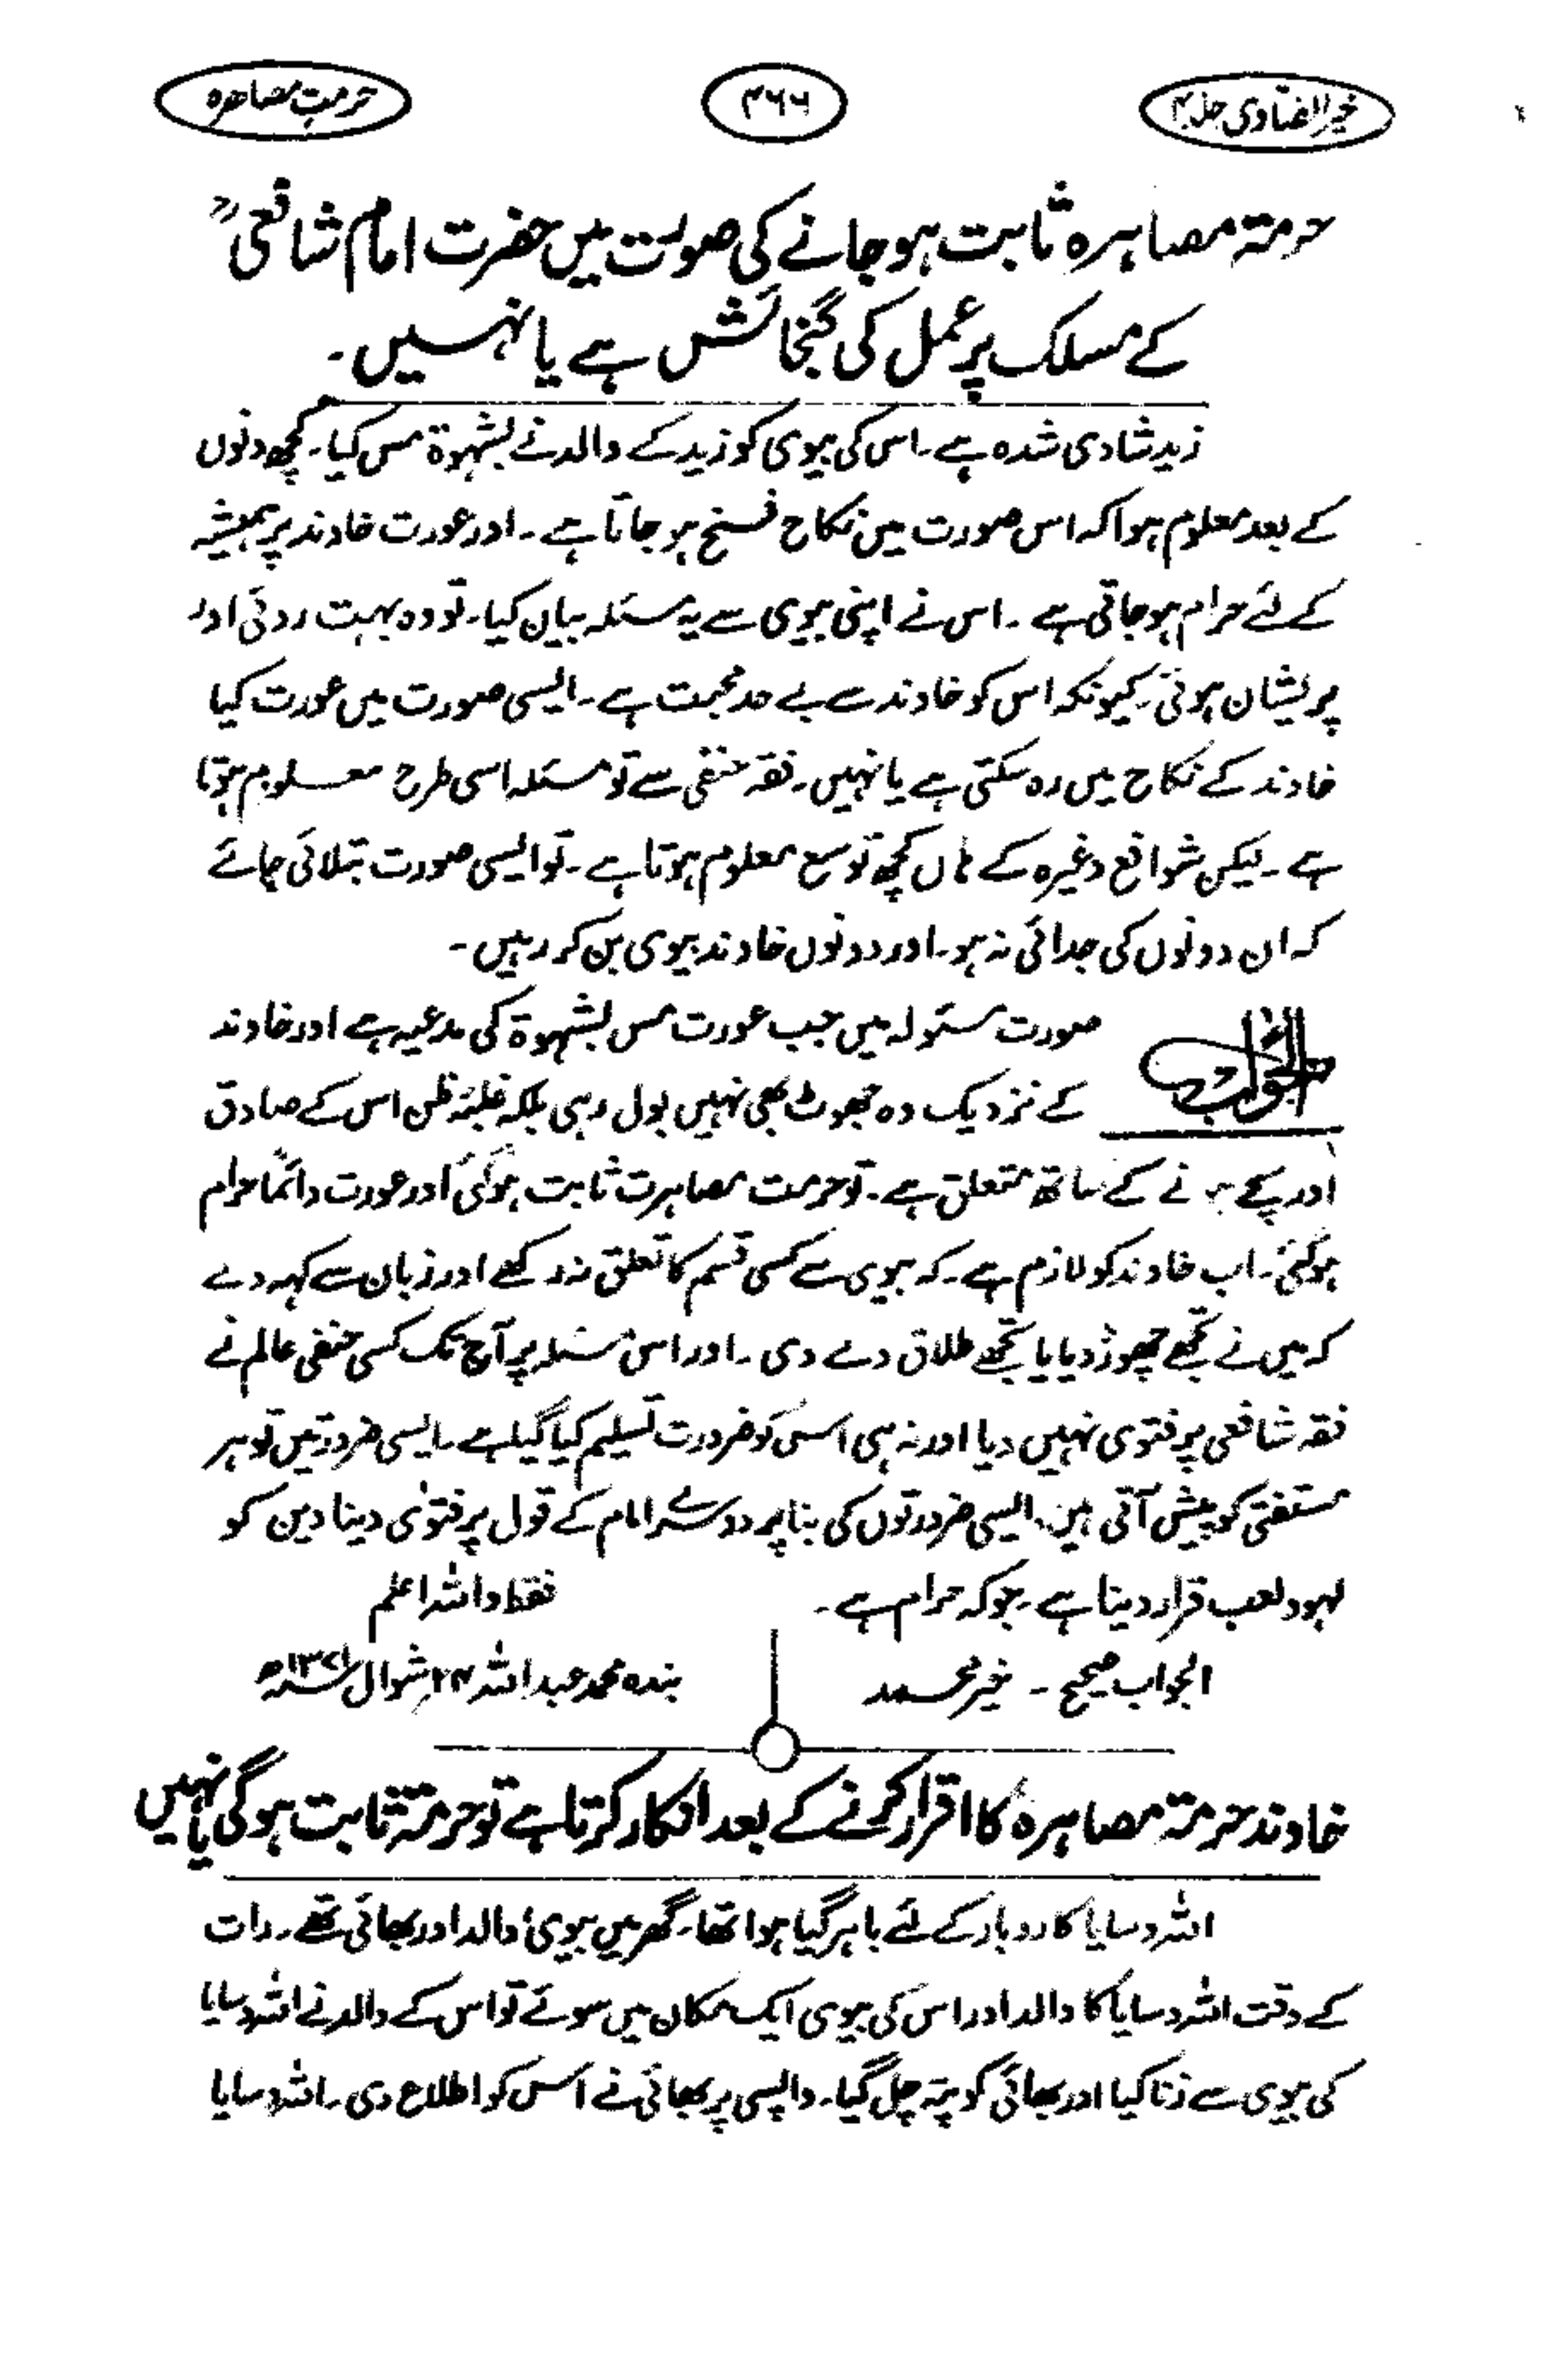 خیر الفتاویٰ جلد ۴
۳۶۶
حرمت مصاہرہ
حرمۃ مصاہرہ ثابت ہو جانے کی صورت میں حضرت امام شافعیؒ
کے مسلک پر عمل کی گنجائش ہے یا نہیں۔
زید شادی شدہ ہے۔ اس کی بیوی کو زید کے والد نے بشہوۃ مس کیا۔ کچھ دنوں
کے بعد معلوم ہوا کہ اس صورت میں نکاح فسخ ہو جاتا ہے۔ اور عورت خاوند پر ہمیشہ
کے لئے حرام ہو جاتی ہے۔ اس نے اپنی بیوی سے یہ مسئلہ بیان کیا۔ تو وہ بہت روئی اور
پریشان ہوئی۔ کیونکہ اس کو خاوند سے بے حد محبت ہے۔ ایسی صورت میں عورت کیا
خاوند کے نکاح میں رہ سکتی ہے یا نہیں۔ فقہ حنفی سے تو مسئلہ اسی طرح معلوم ہوتا
ہے۔ لیکن شوافع وغیرہ کے ہاں کچھ توسع معلوم ہوتا ہے۔ تو ایسی صورت بتلائی جائے
کہ ان دونوں کی جدائی نہ ہو۔ اور دونوں خاوند بیوی بن کر رہیں۔
الجواب
صورت مسئولہ میں جب عورت مس بشہوۃ کی مدعیہ ہے اور خاوند
کے نزدیک وہ جھوٹ بھی نہیں بول رہی بلکہ غلبۂ ظن اس کے صادق
اور سچے ہونے کے ساتھ متعلق ہے۔ تو حرمت مصاہرت ثابت ہو گئی اور عورت دائماً حرام
ہو گئی۔ اب خاوند کو لازم ہے۔ کہ بیوی سے کسی قسم کا تعلق نہ رکھے اور زبان سے کہہ دے
کہ میں نے تجھے چھوڑ دیا یا تجھے طلاق دے دی۔ اور اس مسئلہ پر آج تک کسی حنفی عالم نے
فقہ شافعی پر فتوی نہیں دیا اور نہ ہی اس کو ضرورت تسلیم کیا گیا ہے۔ ایسی ضرورتیں تو ہر
مستفتی کو پیش آتی ہیں۔ ایسی ضرورتوں کی بنا پر دوسرے امام کے قول پر فتوٰی دینا دین کو
لہو و لعب قرار دینا ہے۔ جو کہ حرام ہے۔ فقط واللہ اعلم
الجواب صحیح۔ خیر محمد
بندہ محمد عبد اللہ ۲۴ شوال ۱۳۷۱ھ
خاوند حرمۃ مصاہرہ کا اقرار کرنے کے بعد انکار کرتا ہے تو حرمۃ ثابت ہو گی یا نہیں
اللہ وسایا کاروبار کے لئے باہر گیا ہوا تھا۔ گھر میں بیوی، والد اور بھائی تھے۔ رات
کے وقت اللہ وسایا کا والد اور اس کی بیوی ایک مکان میں سوئے تو اس کے والد نے اللہ وسایا
کی بیوی سے زنا کیا اور بھائی کو پتہ چل گیا۔ واپسی پر بھائی نے اس کو اطلاع دی۔ اللہ وسایا